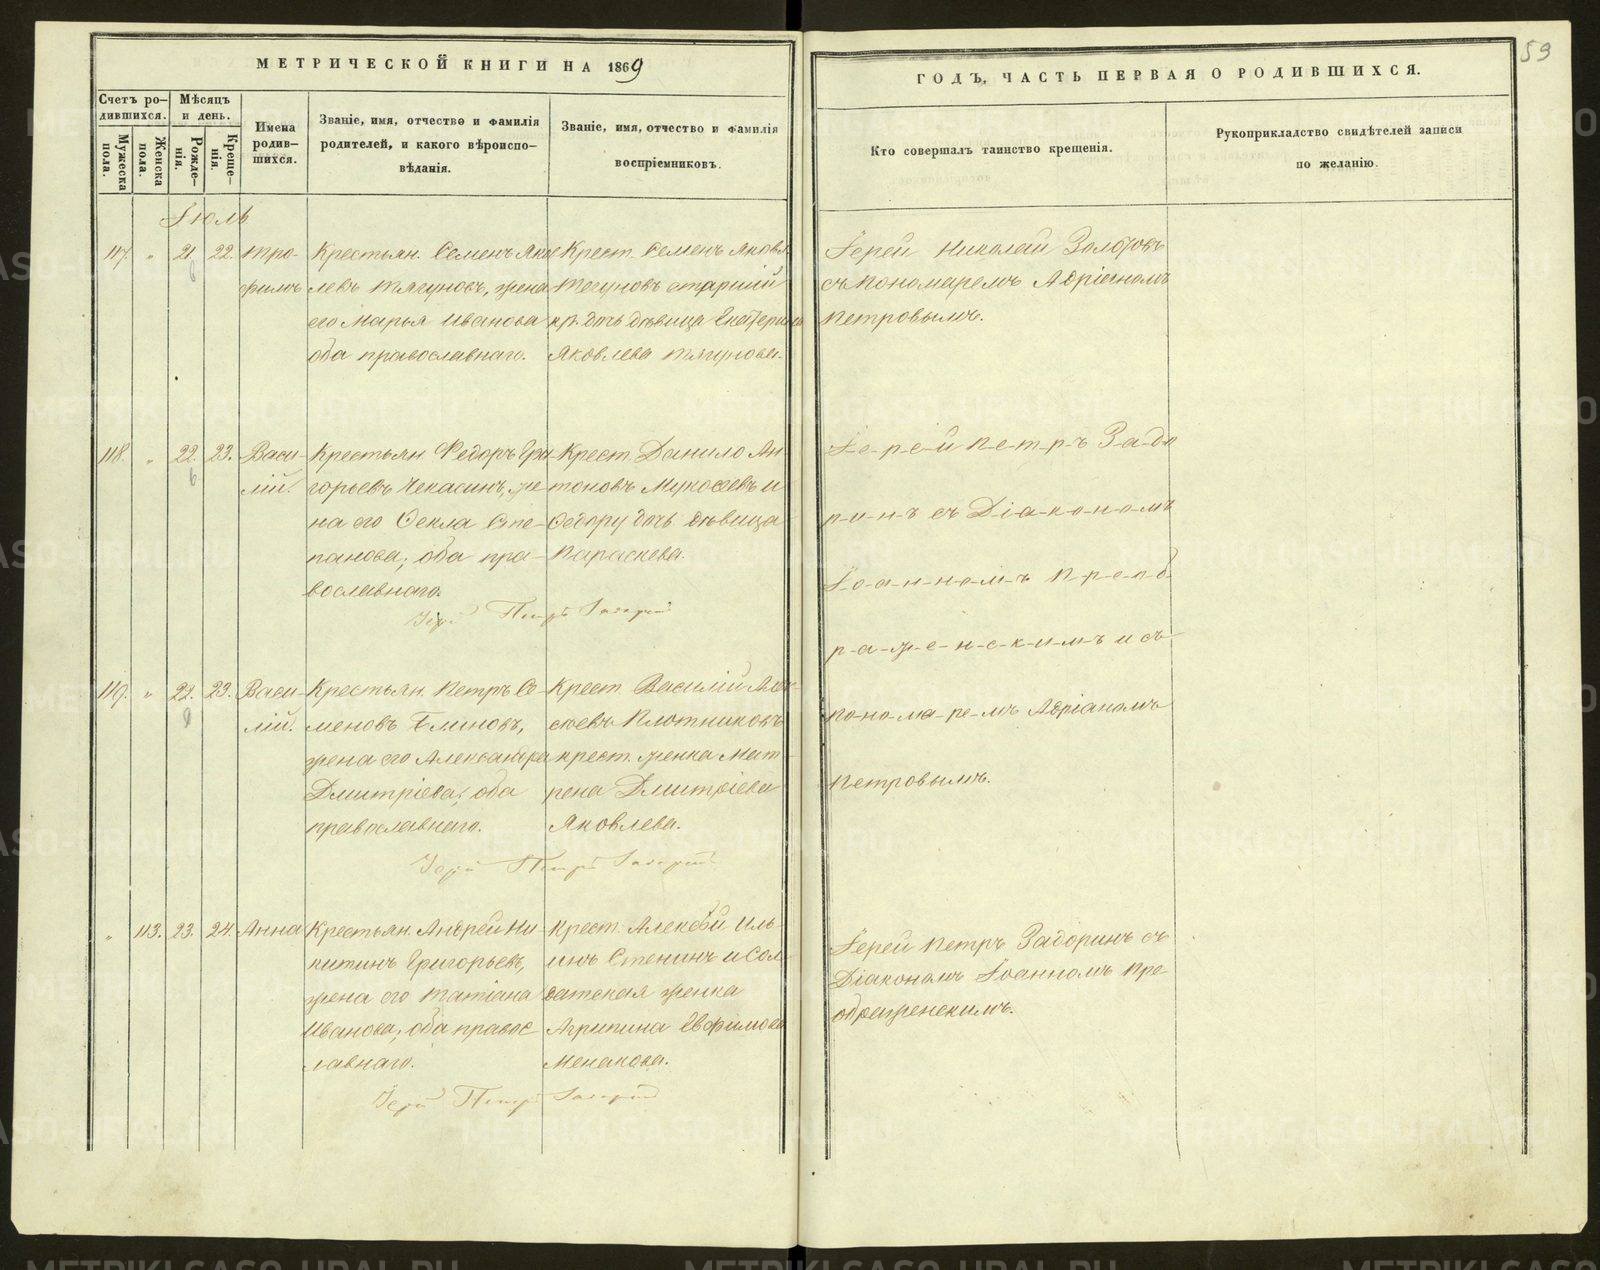 МЕТРИЧЕСКОЙ КНИГИ НА 1869
ГОДЪ, ЧАСТЬ ПЕРВАЯ О РОДИВШИХСЯ.
59
Счетъ ро-
дившихся.
Мужеска
пола.
Женска
пола.
Мѣсяцъ
и день.
Рожде-
нія.
Креще-
нія.
Имена
родив-
шихся.
Званіе, имя, отчество и фамилія
родителей, и какого вѣроиспо-
вѣданія.
Званіе, имя, отчество и фамилія
воспріемниковъ.
Кто совершалъ таинство крещенія.
Рукоприкладство свидѣтелей записи
по желанію.
Іюль
117. " 21 22. Тро-
фимъ
Крестьян. Семенъ Яков
левъ Тягуновъ, жена
его Марья Иванова
оба православнаго.
Крест. Семенъ Яковл.
Тягуновъ старшій
кр. дочь дѣвица Екатерина
Яковлева Тягунова.
Іерей Николай Золотовъ
съ пономаремъ Адріаномъ
Петровымъ.
118. " 22. 23. Васи-
лій.
Крестьян. Федоръ Гри
горьевъ Чекасинъ, же
на его Ѳекла Сте-
панова, оба пра-
вославнаго.
Крест. Данило Ан-
тоновъ Мукосеевъ и
Федору дочь дѣвица
Параскева.
Іерей Петръ
Іерей Петръ Задо
ринъ съ Діакономъ
Іоанномъ Преоб
раженскимъ и съ
пономаремъ Адріаномъ
Петровымъ.
119. " 22. 23. Васи-
лій.
Крестьян. Петръ Се-
меновъ Блиновъ,
жена его Александра
Дмитріева, оба
православнаго.
Крест. Василій Алек-
сѣевъ Плотниковъ
крест. женка Мат-
рена Дмитріева
Яковлева.
Іерей Петръ
" 113. 23. 24. Анна
Крестьян. Андрей Ни-
китинъ Григорьевъ,
жена его Татіана
Иванова, оба правос
лавнаго.
Крест. Алексѣй Иль-
инъ Стенинъ и Сол-
датская женка
Агрипина Евфимова
Менакова.
Іерей Петръ
Іерей Петръ Задоринъ съ
Діакономъ Іоанномъ Пре-
ображенскимъ.
METRIKI.GASO-URAL.RU